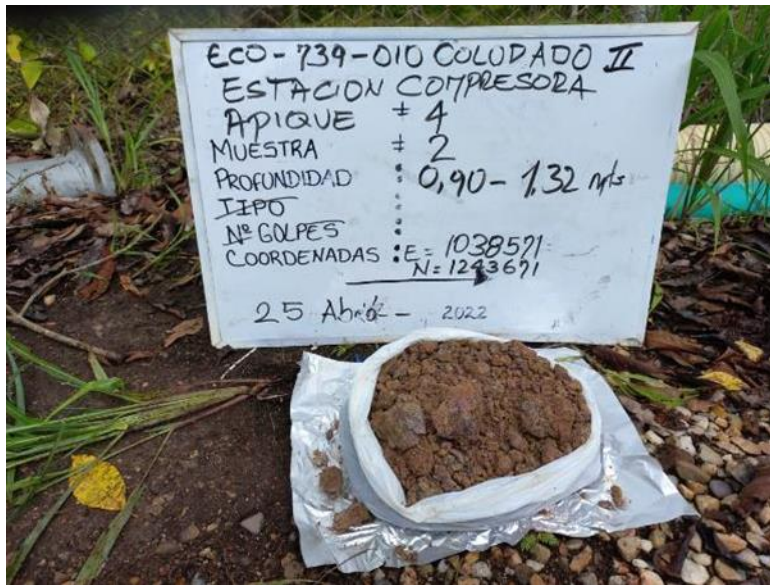 ECO-739-010 COLUDADO II
ESTACION COMPRESORA
APIQUE # 4
MUESTRA # 2
PROFUNDIDAD : 0,90 - 1,32 mts
TIPO :
Nº GOLPES :
COORDENADAS : E = 1038571
N = 1243671
25 Abril - 2022